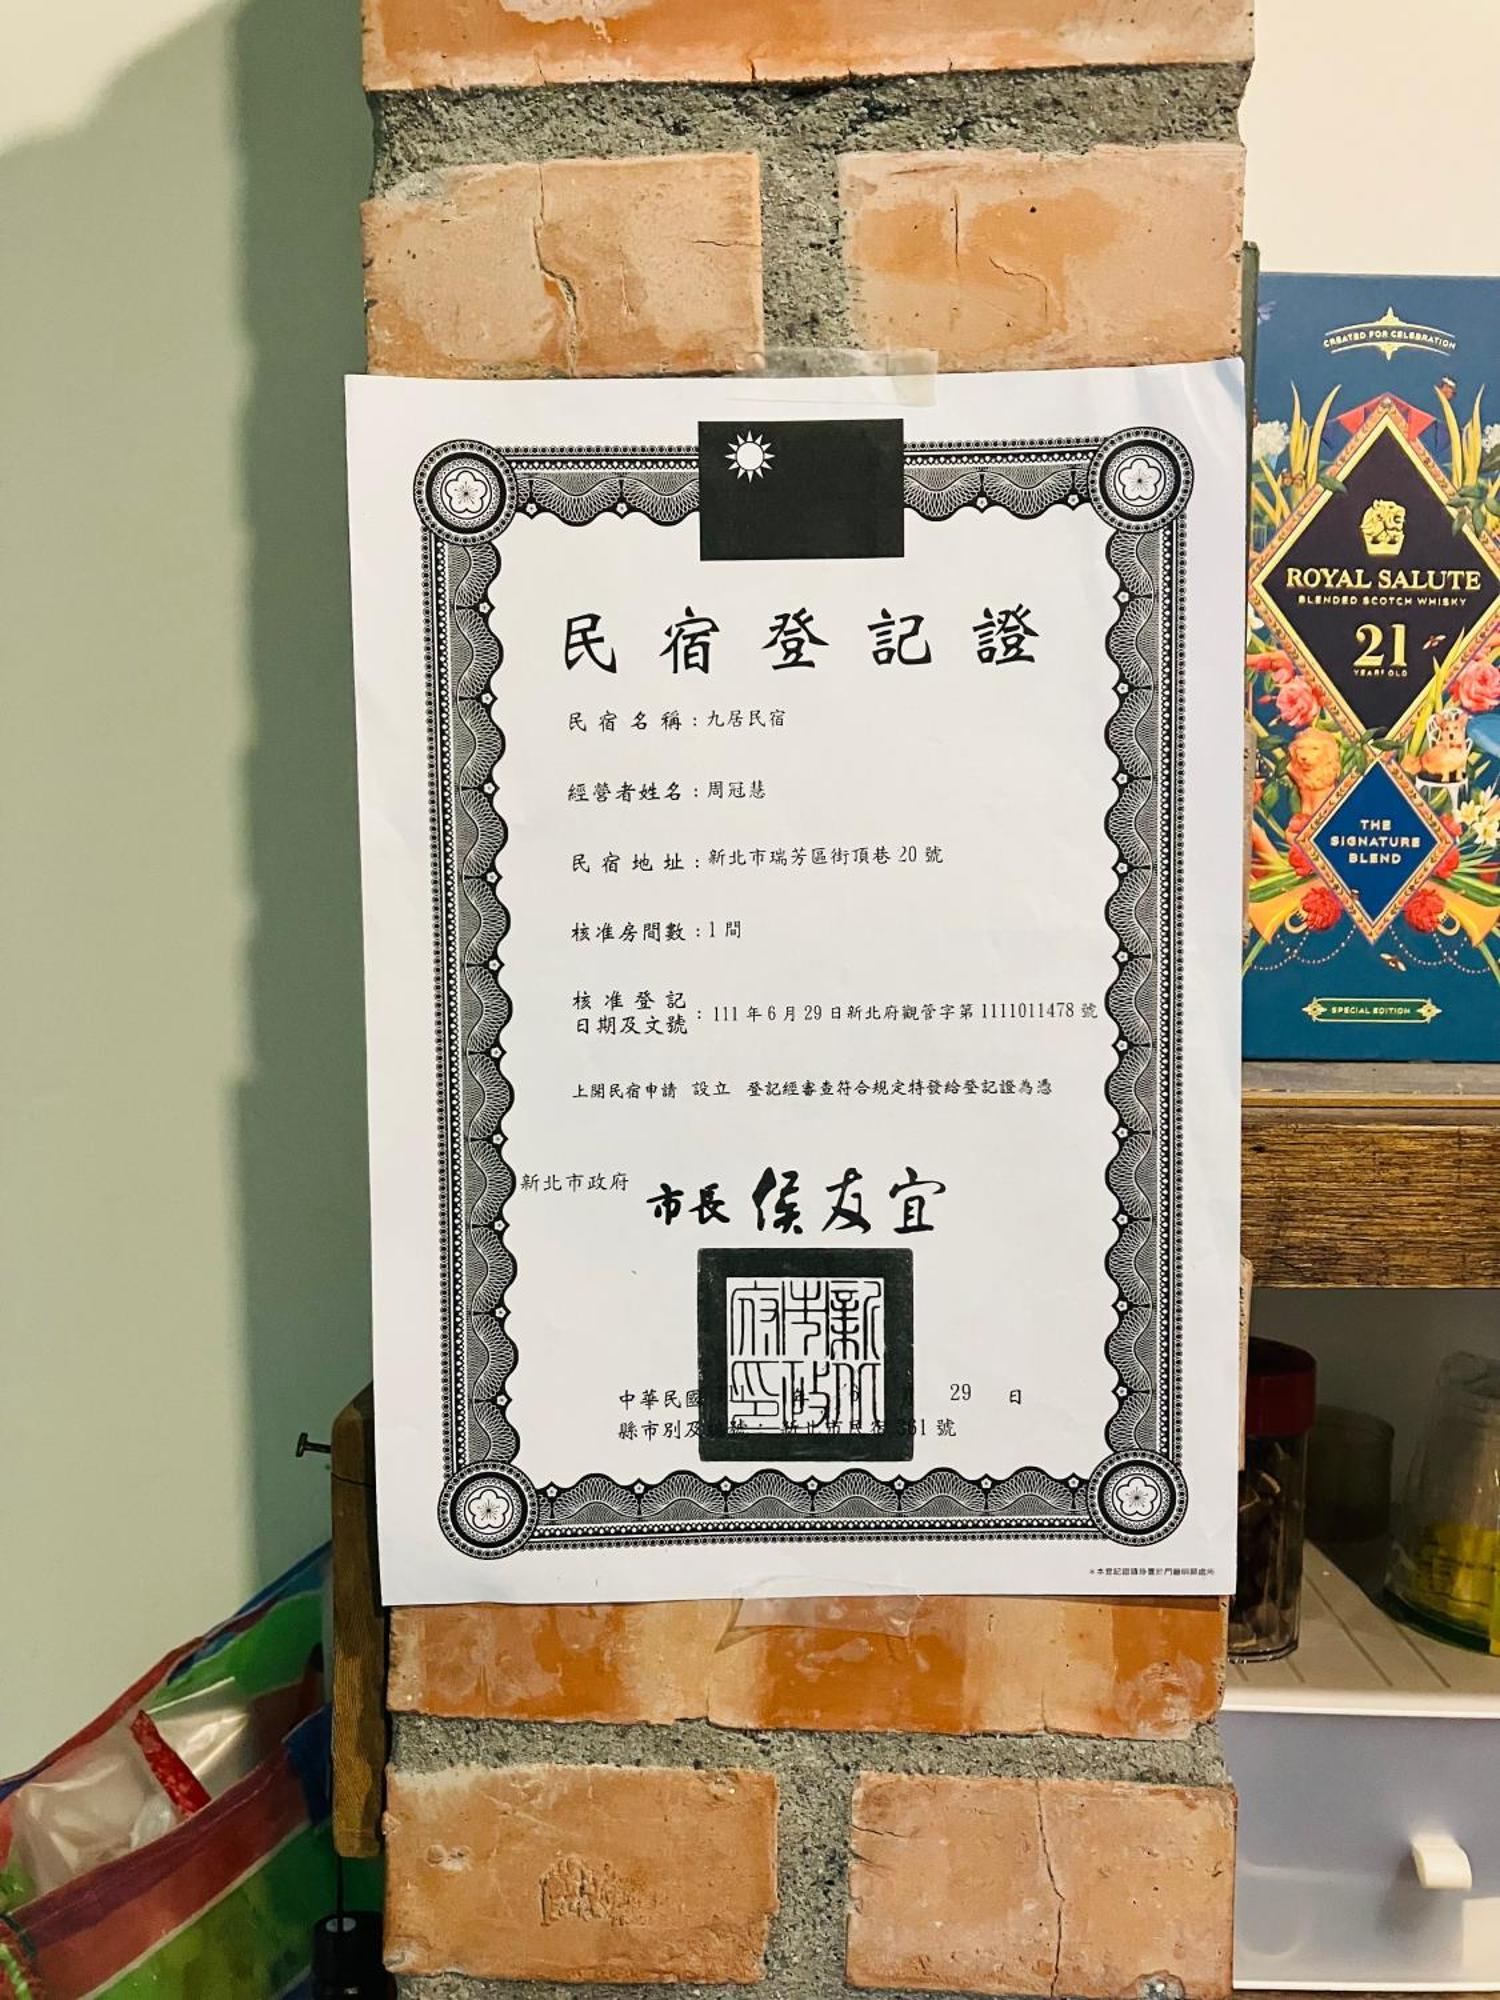 民宿登記證
民宿名稱：九居民宿
經營者姓名：周冠慧
民宿地址：新北市瑞芳區街頂巷 20 號
核准房間數：1 間
核准登記
日期及文號：111 年 6 月 29 日新北府觀管字第 1111011478 號
上開民宿申請 設立 登記經審查符合規定特發給登記證為憑
新北市政府 市長 侯友宜
新北市政府印
中華民國 年 6 29 日
縣市別及編號：新北市民宿361 號
CREATED FOR CELEBRATION
ROYAL SALUTE
BLENDED SCOTCH WHISKY
21
YEARS OLD
THE
SIGNATURE
BLEND
SPECIAL EDITION